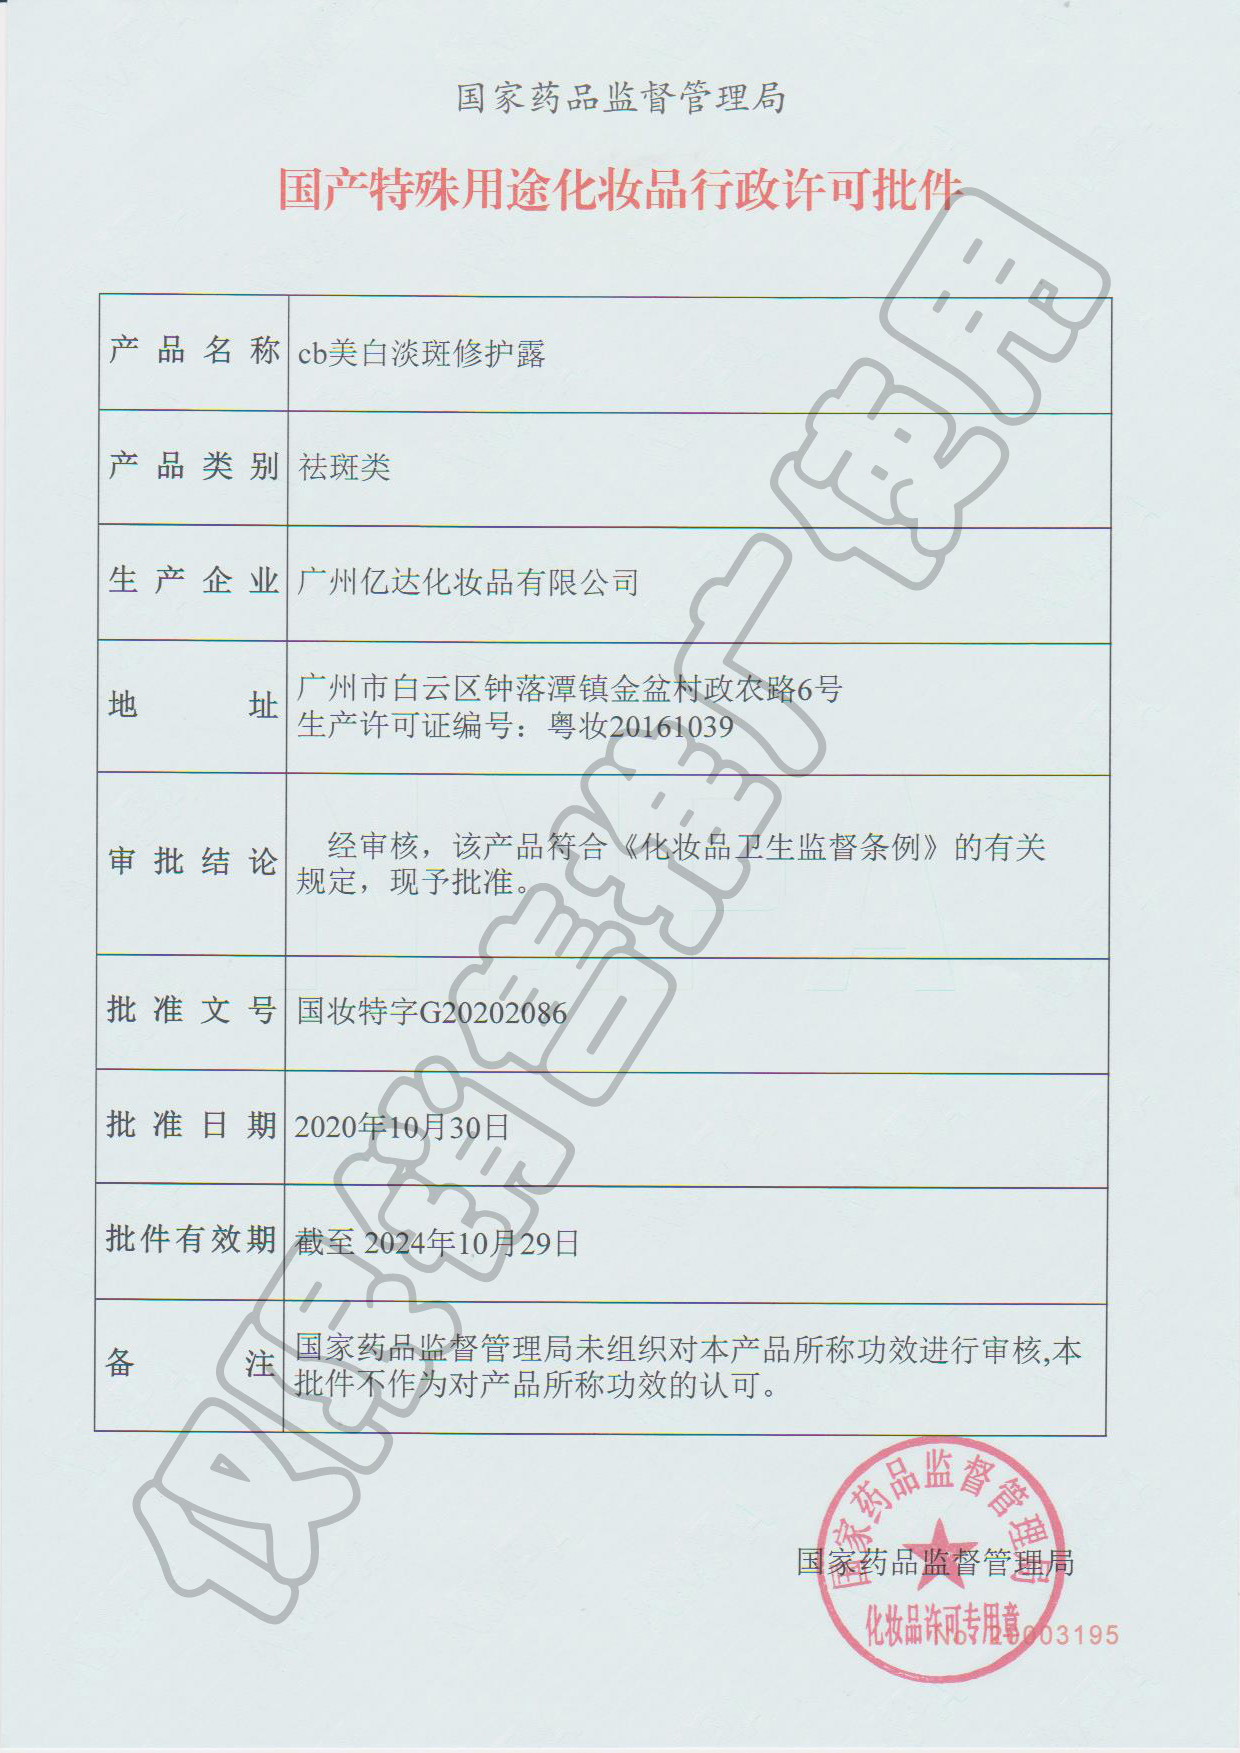 国家药品监督管理局
国产特殊用途化妆品行政许可批件
产品名称 cb美白淡斑修护露
产品类别 祛斑类
生产企业 广州亿达化妆品有限公司
地址 广州市白云区钟落潭镇金盆村政农路6号
生产许可证编号：粤妆20161039
审批结论 经审核，该产品符合《化妆品卫生监督条例》的有关
规定，现予批准。
批准文号 国妆特字G20202086
批准日期 2020年10月30日
批件有效期 截至 2024年10月29日
备注 国家药品监督管理局未组织对本产品所称功效进行审核,本
批件不作为对产品所称功效的认可。
国家药品监督管理局
国家药品监督管理局
化妆品许可专用章
No. 20003195
仅限于